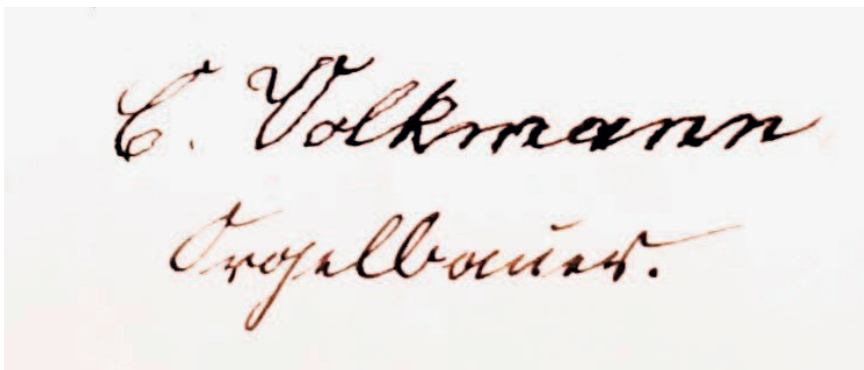 C. Volkmann
Orgelbauer.